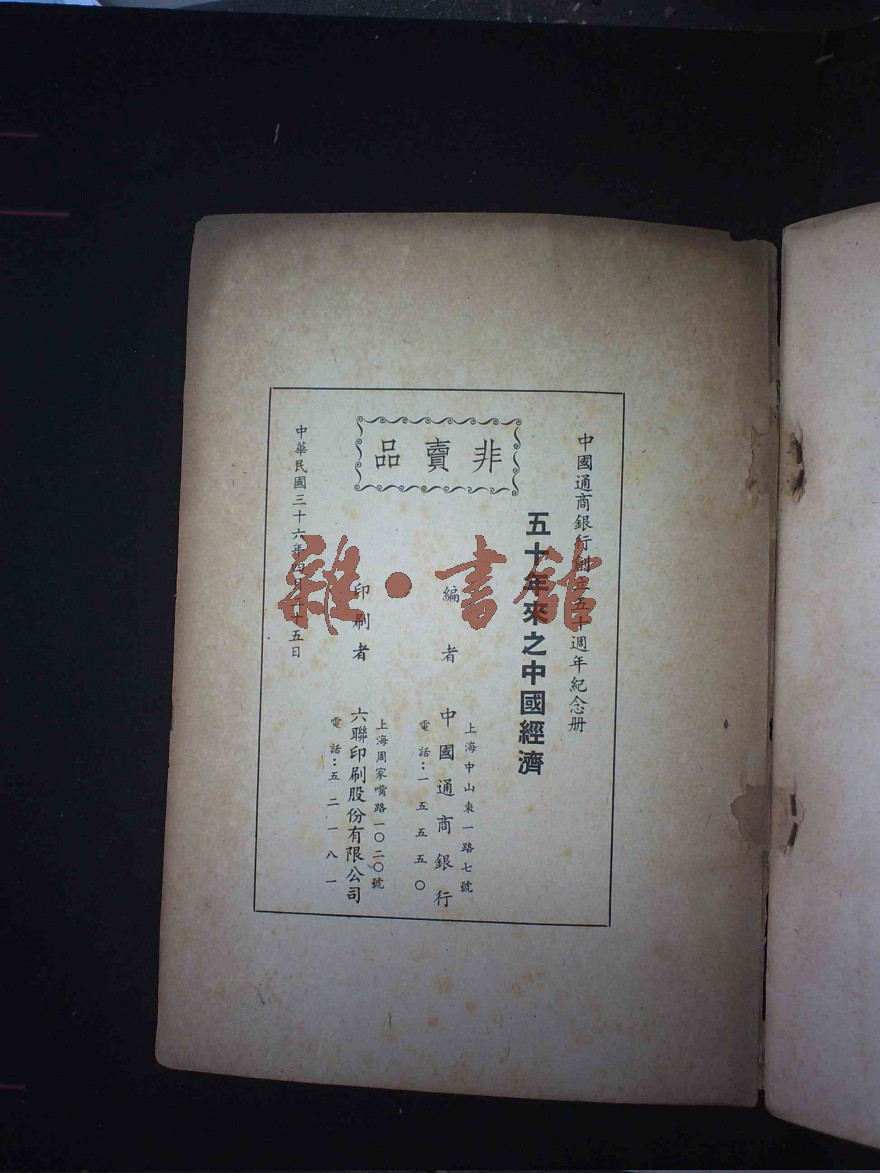 中國通商銀行創立五十週年紀念册
五十年來之中國經濟
非賣品
編者
上海中山東一路七號
中國通商銀行
電話：一五五五〇
印刷者
上海周家嘴路一〇二〇號
六聯印刷股份有限公司
電話：五二一八一
中華民國三十六年四月二十五日
雜·書館